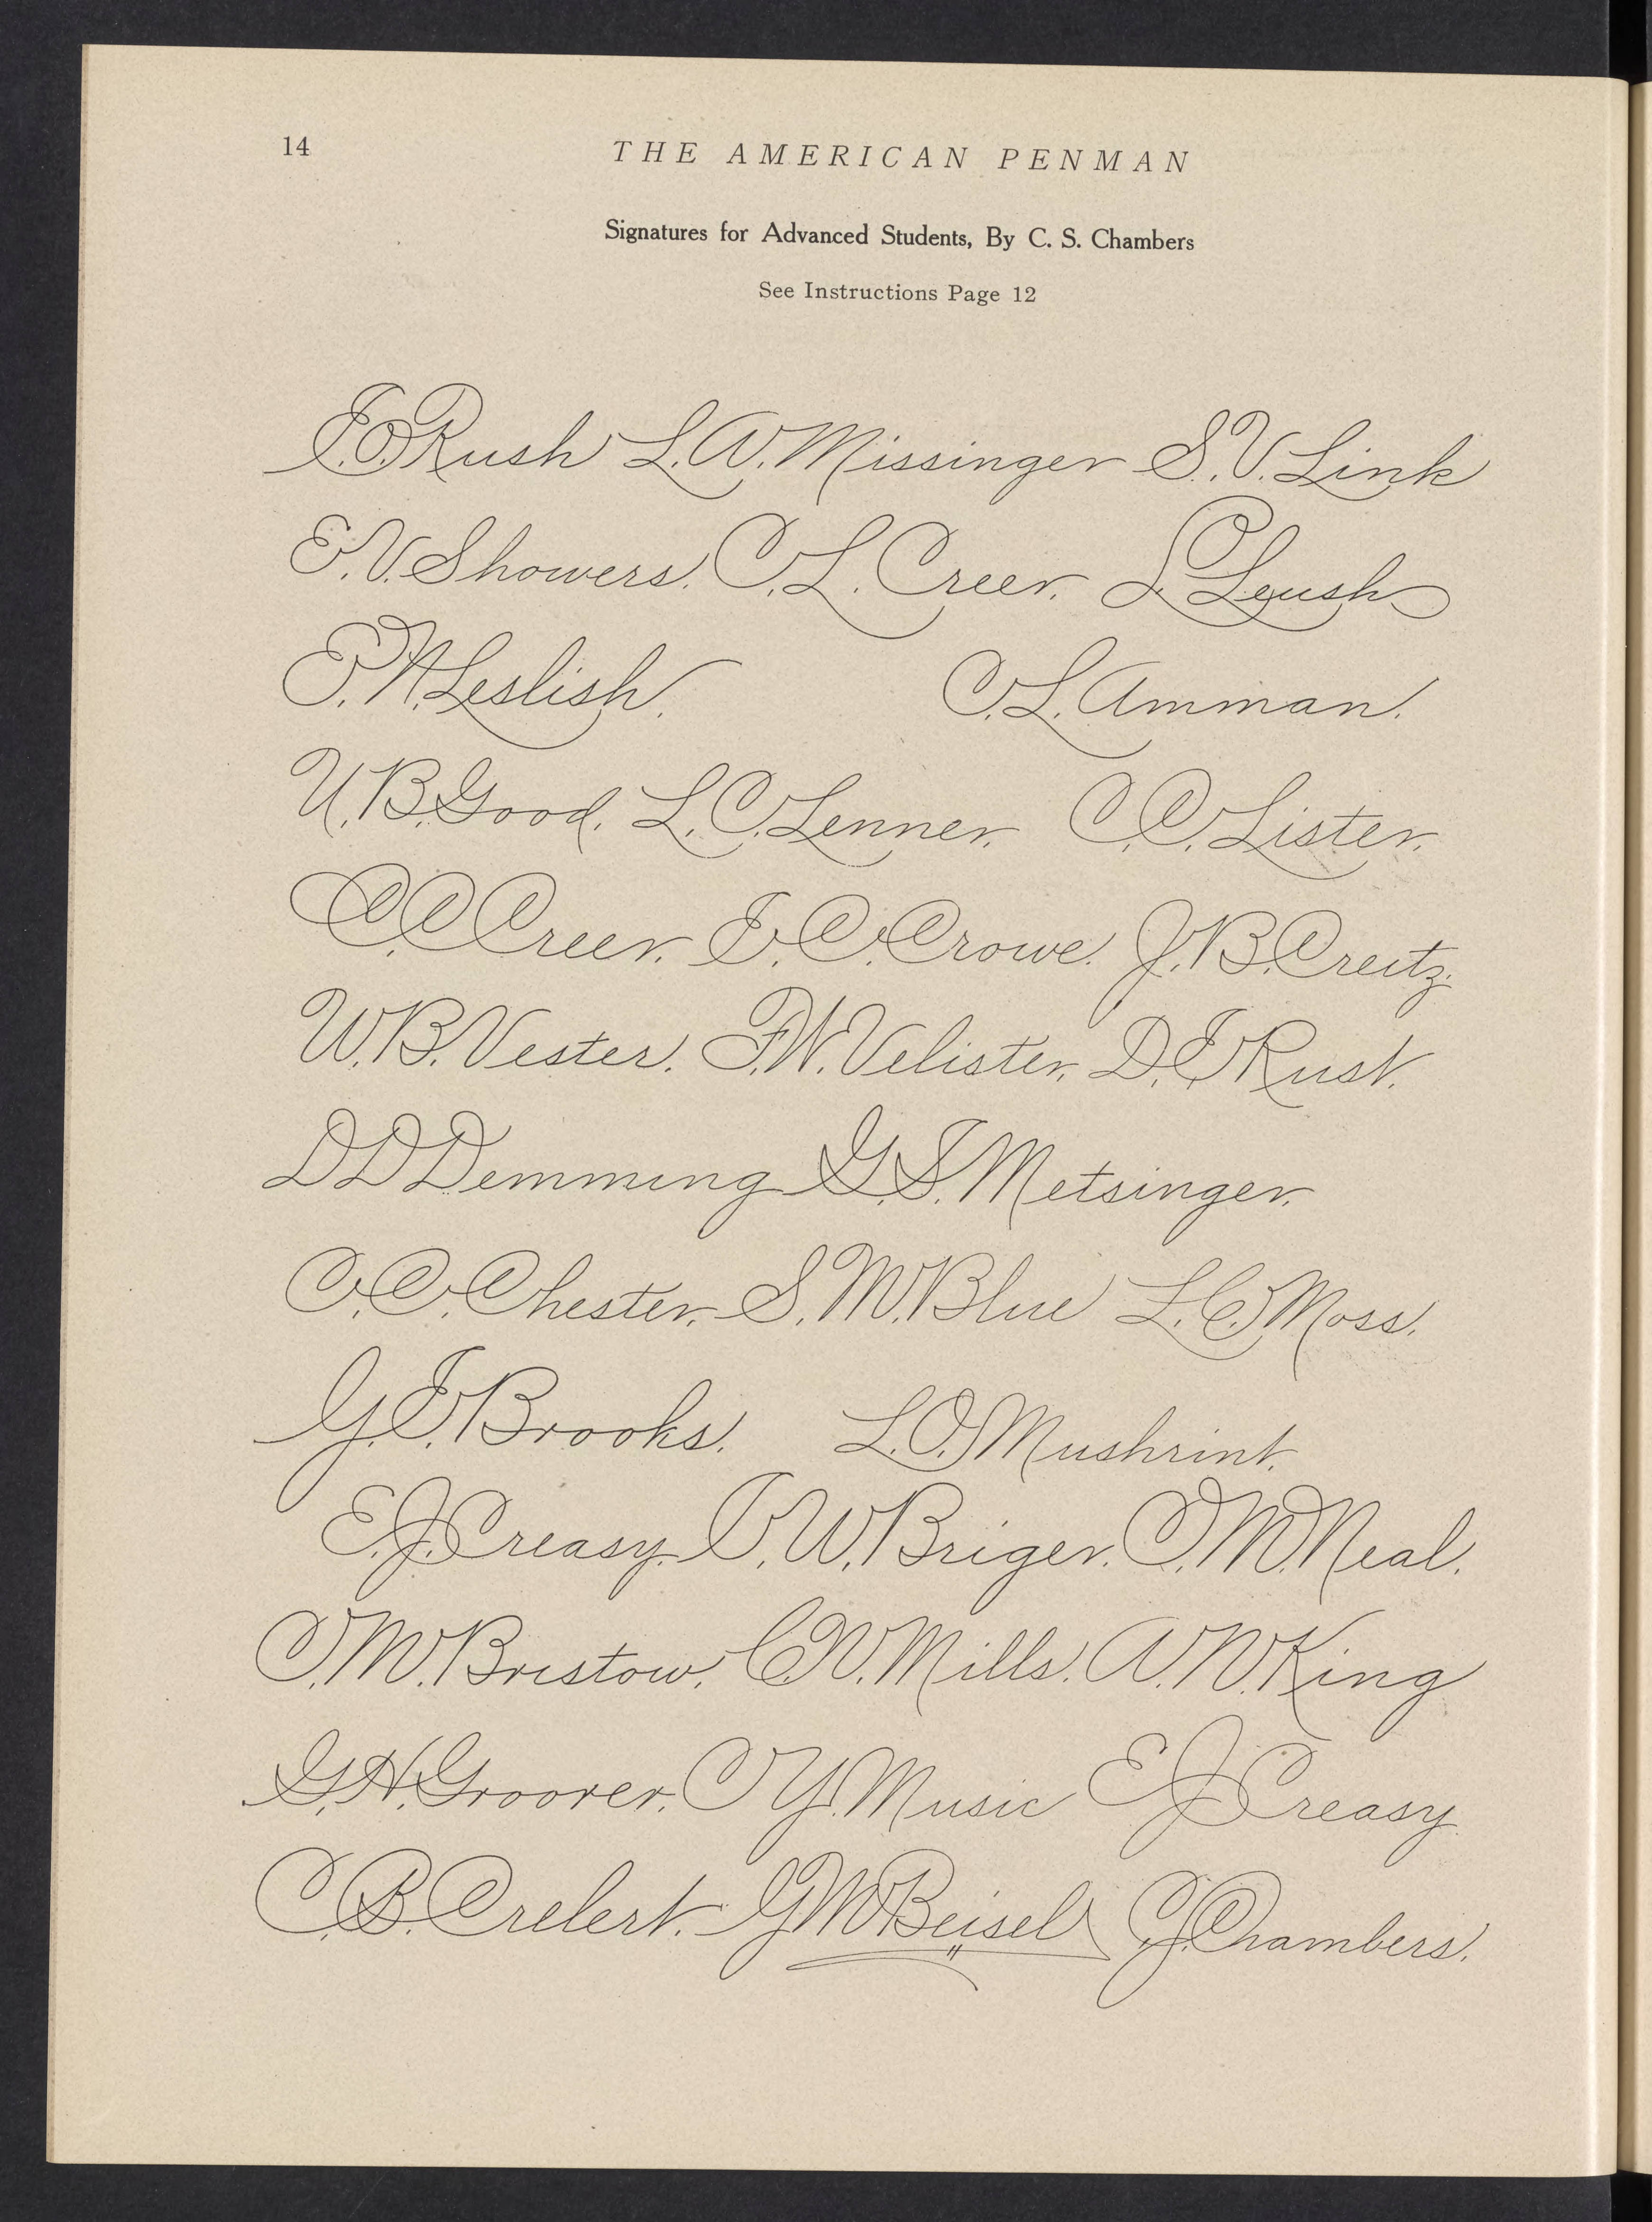 14
THE AMERICAN PENMAN
Signatures for Advanced Students, By C. S. Chambers
See Instructions Page 12
Rush L.W. Missinger S.V. Link
E.V. Showers. C.L. Creer. Leush
P.N. Leslish. C.L. Amman.
U.B. Good. L.C. Lenner. C.C. Lister.
C.C. Creer. E.C. Crowe. J.B. Creitz.
W.B. Vester. F.W. Velister. D. Rust.
D D Demming G.S. Metsinger.
C.C. Chester. S.M. Blue L.C. Moss.
G. Brooks. L.O. Mushrint.
E.J. Creasy. W. Briger. O.M. Neal.
O.M. Bristow. C.W. Mills. A.W. King
G.H. Groover. C Y. Music E J Creasy
C.B. Crelert. G M Beisel C.J. Chambers.